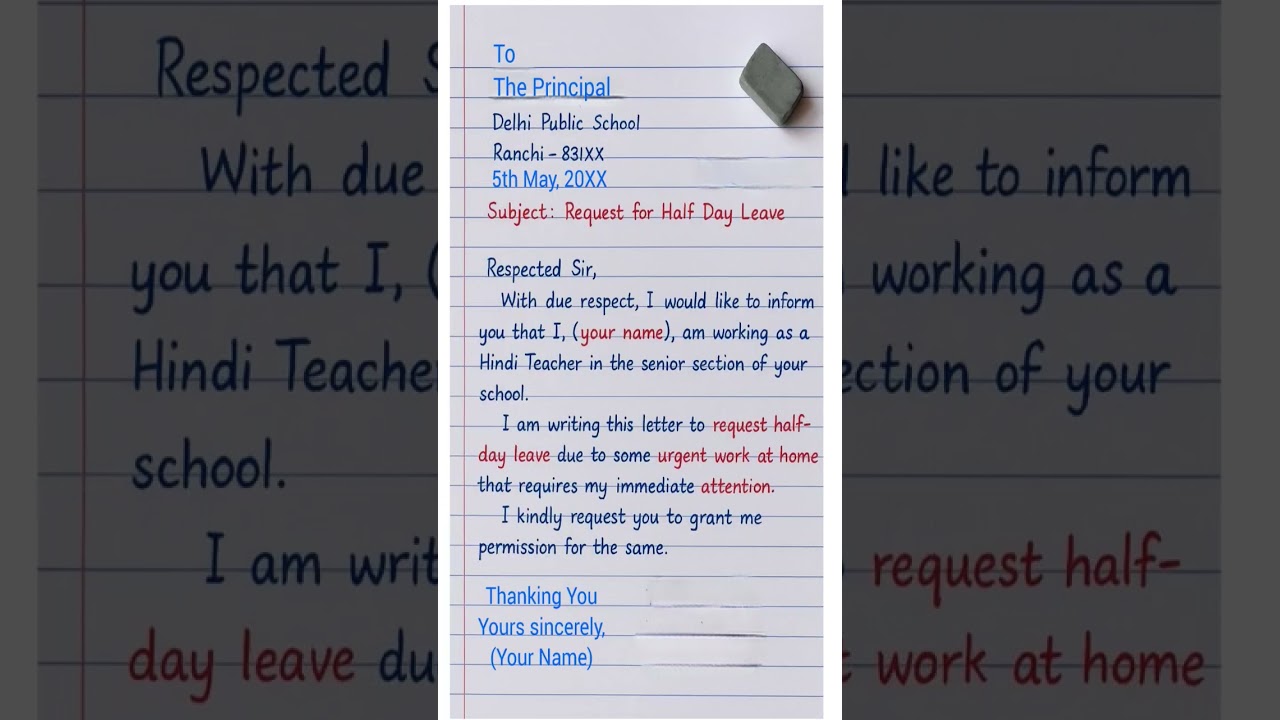 To
The Principal
Delhi Public School
Ranchi - 831XX
5th May, 20XX
Subject: Request for Half Day Leave
Respected Sir,
With due respect, I would like to inform
you that I, (your name), am working as a
Hindi Teacher in the senior section of your
school.
I am writing this letter to request half-
day leave due to some urgent work at home
that requires my immediate attention.
I kindly request you to grant me
permission for the same.
Thanking You
Yours sincerely,
(Your Name)
Respected S
With due
you that I, (
Hindi Teache
school.
I am writ
day leave du
like to inform
working as a
ection of your
request half-
work at home